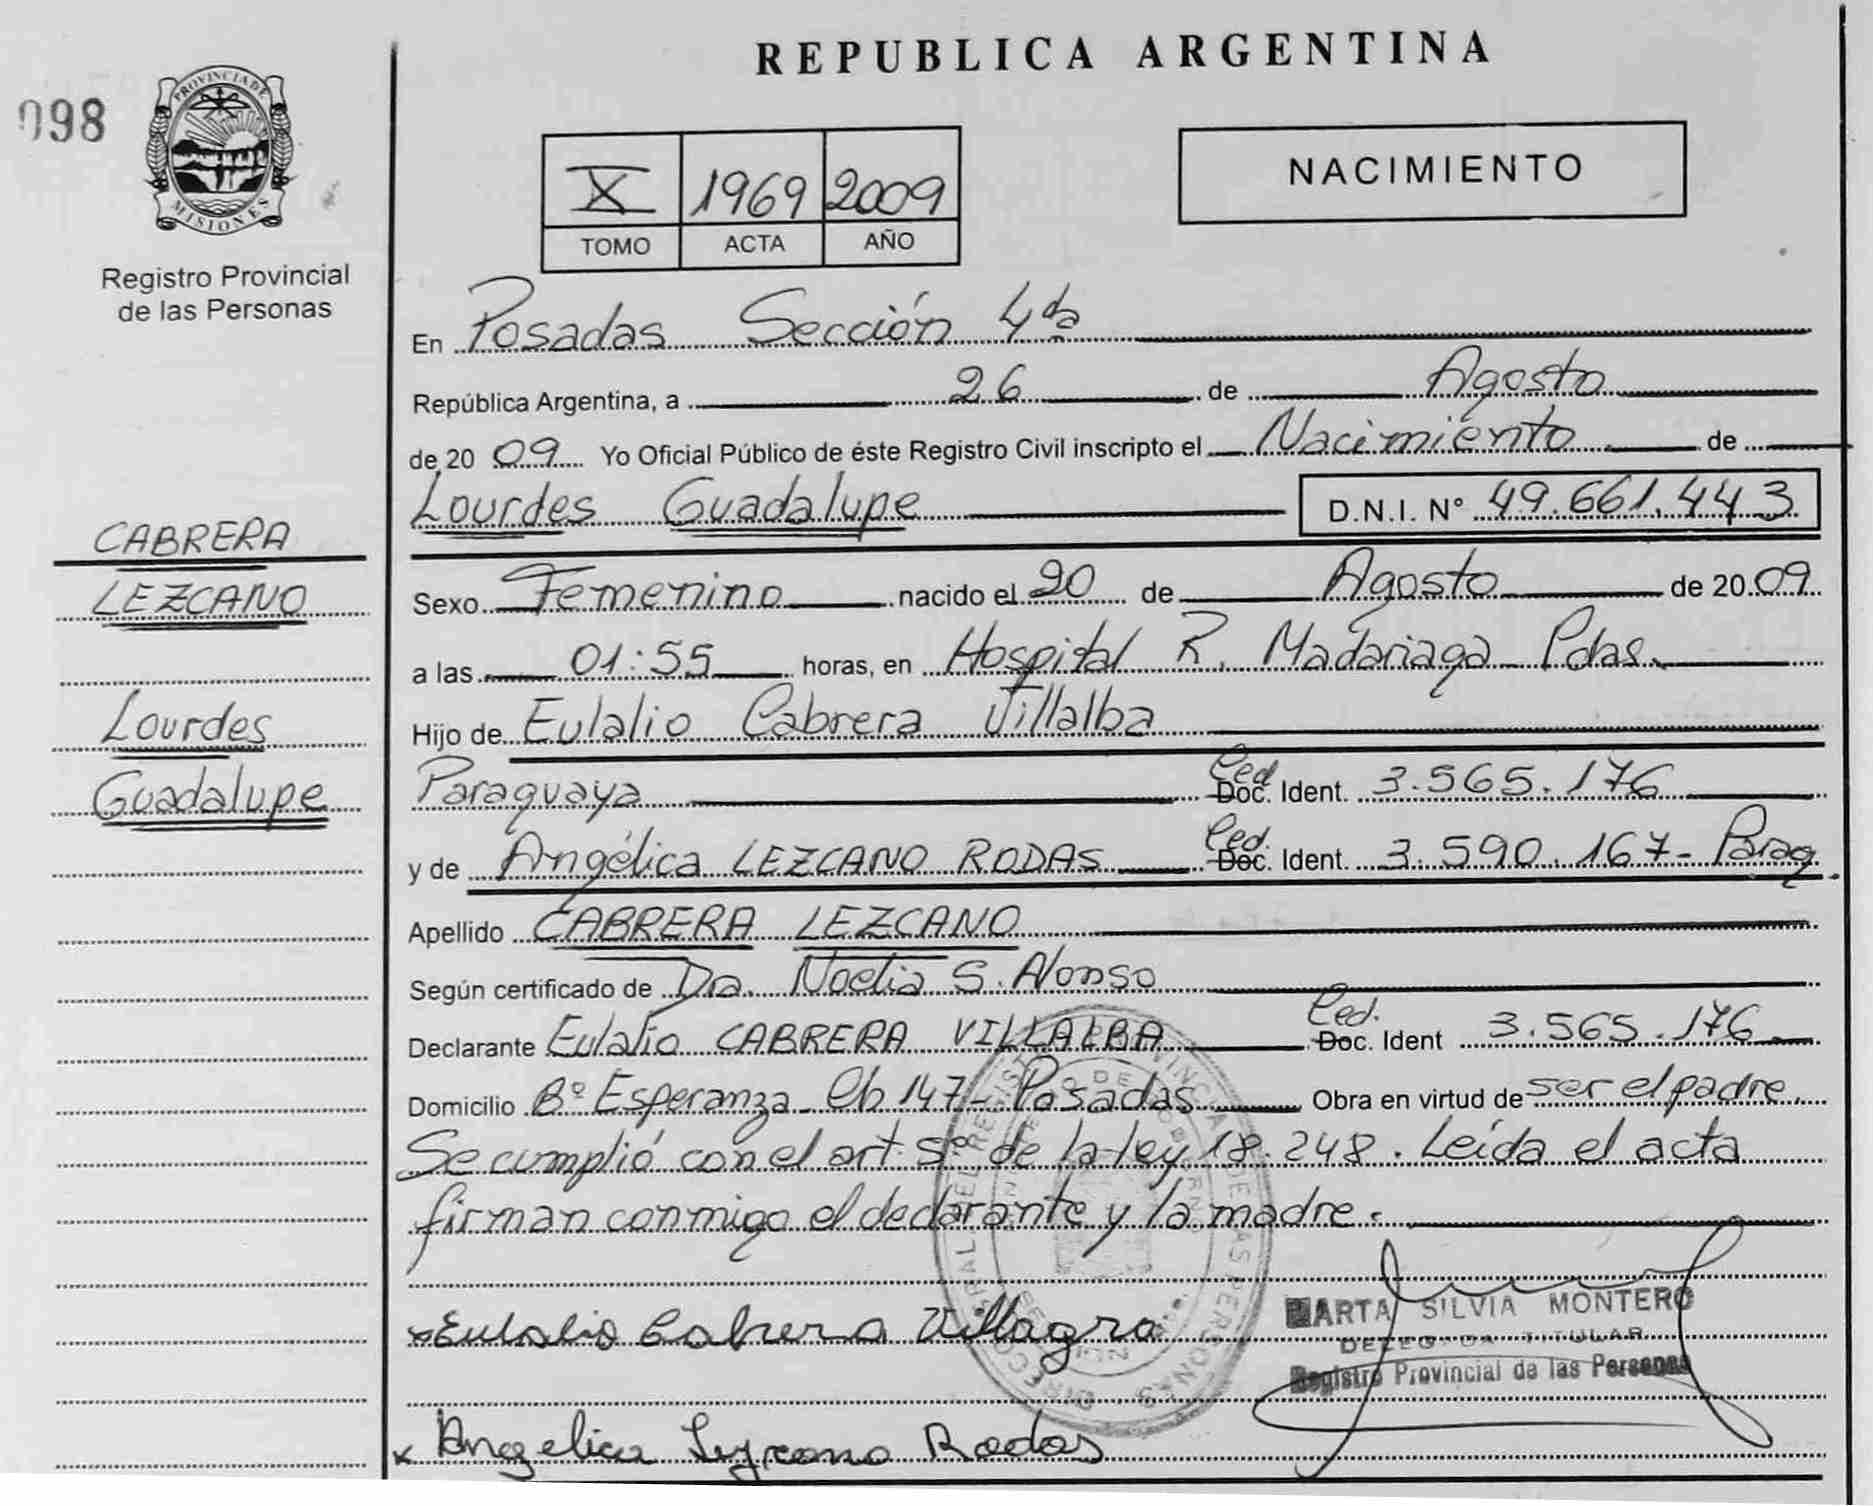 REPUBLICA ARGENTINA
098
PROVINCIA DE
MISIONES
Registro Provincial
de las Personas
X 1969 2009
TOMO ACTA AÑO
NACIMIENTO
En Posadas Sección 4da
República Argentina, a 26 de Agosto
de 20 09 Yo Oficial Público de éste Registro Civil inscripto el Nacimiento de
Lourdes Guadalupe D.N.I. N° 49.661.443
CABRERA
LEZCANO
Lourdes
Guadalupe
Sexo Femenino nacido el 20 de Agosto de 20 09
a las 01:55 horas, en Hospital R. Madariaga Pdas.
Hijo de Eulalio Cabrera Villalba
Paraguaya Ced. Doc. Ident. 3.565.176
y de Angélica LEZCANO RODAS Ced. Doc. Ident. 3.590.167- Parag.
Apellido CABRERA LEZCANO
Según certificado de Dra. Noelia S. Alonso
Declarante Eulalio CABRERA VILLALBA Ced. Doc. Ident 3.565.176
Domicilio Bº Esperanza Cb 147- Posadas Obra en virtud de ser el padre.
Se cumplió con el art. 5º de la ley 18.248. Leída el acta
firman conmigo el declarante y la madre.
x Eulalio Cabrera Villagra
MARTA SILVIA MONTERO
DELEGADA TITULAR
Registro Provincial de las Personas
x Angelica Lezcano Rodas